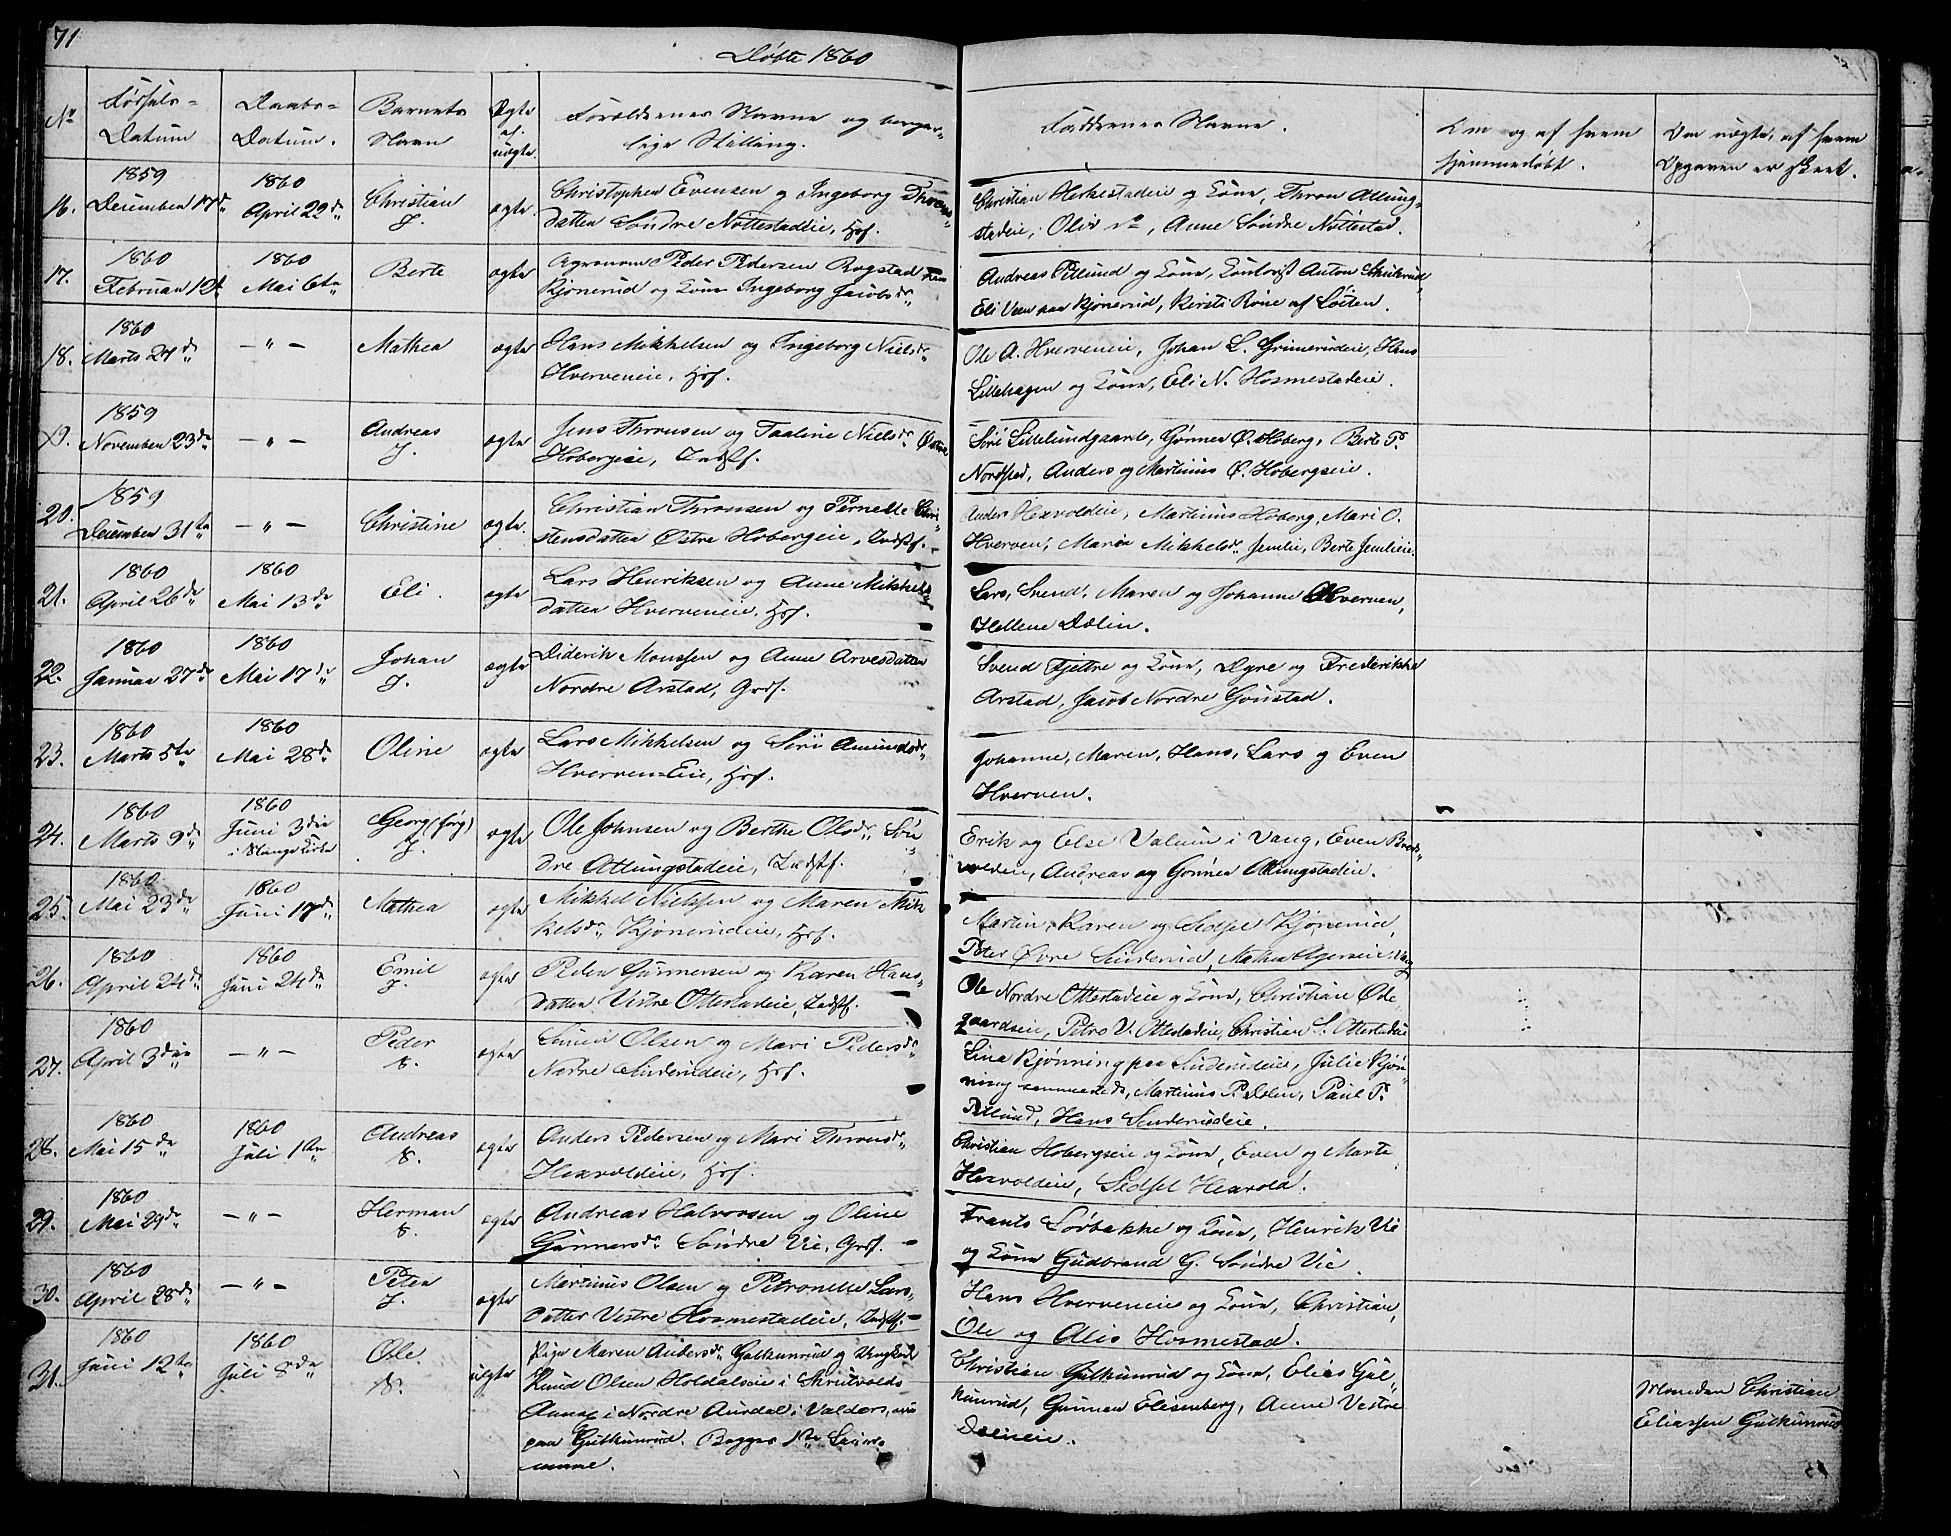 71
Døbte 1860
No Fødsels- Datum Daabs- Datum. Barnets Navn Ægte el. uægte. Forældrenes Navne og borger- lige Stilling. Faddrenes Navne. Om og af hvem hjemmedøbt. Om uægte, af hvem Opgaven er skeet.
16. 1859 December 17de 1860 April 22de Christian J. ægte. Christopher Evensen og Ingeborg Throns-
datter Søndre Nøttestadeie, Hsf.
Christian Herkestadeie og Kone, Thron Atlung-
stadeie, Oliv do, Anne Søndre Nøttestad.
17. 1860 Februar 12te 1860 Mai 6te Berte ægte Agronom Peder Pedersen Rogstad
Kjønerud og Kone Ingeborg Jacobsdr.
Andreas Petlund og Kone, Anton
Eli Veen paa Kjønerud, Kirsti Røne af Løiten.
18. 1860 Marts 24de — " — Mathea ægte Hans Mikkelsen og Ingeborg Nielsdr.
Hverveneie, Hsf.
Ole A. Hverveneie, Johan L. Grimerudeie, Hans
Lillehagen og Kone, Eli N. Hosmestadeie.
19. 1859 November 23de — " — Andreas J. ægte Jens Thronsen og Pauline Nielsdr. Østre
Hobergeie, Indst.
Siri Lillelundgaard, Gunner Ø. Hoberg, Berte P.
Nordstad, Anders og Martinus Ø. Hobergseie.
20. 1859 December 31te — " — Christine ægte. Christian Thronsen og Pernelle Chri-
stensdatter Østre Hobergeie, Indst.
Anders Hexvoldeie, Martinus Hoberg, Mari O.
Hverven, Maria Mikkelsdr. Jemlie, Berte Jemlieie.
21. 1860 April 26de 1860 Mai 13de Eli. ægte Lars Henriksen og Anne Mikkels-
datter Hverveneie, Hsf.
Lars, Svend, Maren og Johanne Hverven,
Hellene Dælin.
22. 1860 Januar 27de 1860 Mai 17de Johan J. ægte Diderik Monssen og Anne Arvesdatter
Nordre Arstad, Grdf.
Svend Fjettre og Kone, Dyre og Frederikke
Arstad, Jacob Nordre Gonstad.
23. 1860 Marts 5te 1860 Mai 28de Oline ægte Lars Mikkelsen og Siri Amundsdr.
Hverven-Eie, Hsf.
Johanne, Maren, Hans, Lars og Even
Hverven.
24. 1860 Marts 9de 1860 Juni 3die i Stange Kirke Georg (Jørg) J. ægte Ole Johnsen og Berthe Olsdr. Søn
dre Atlungstadeie, Indst.
Erik og Else Valum i Vang, Even
Andreas og Gunner Atlungstadeie.
25. 1860 Mai 23de 1860 Juni 17de Mathea ægte Mikkel Nielsen og Maren Mik
kelsdr. Kjønerudeie, Hsf.
Martin, Karen og Sidsel Kjønerud,
Peter Øvre Sinderud, Mathea
26. 1860 April 24de 1860 Juni 24de Emil J. ægte Peder Gunnersen og Karen Hans-
datter Vestre Ottestadeie, Indst.
Ole Nordre Ottestadeie og Kone, Christian Øde
gaardseie, Petro V. Ottestadeie, Christian S. Ottestadeie
27. 1860 April 3die — " — Peder S. ægte Simen Olsen og Mari Pedersdr.
Nedre Sinderudeie, Hsf.
Lina Kjønning paa Sinderudeie, Julie Kjøn-
ning sammesteds, Martinus P. Paul P.
Petlund, Hans Sinderudeie.
28. 1860 Mai 15de 1860 Juli 1ste Andreas S. ægte Anders Pedersen og Mari Thronsdr.
Hexvoldeie, Hsf.
Christian Hobergseie og Kone, Even og Marte
Hexvoldeie, Sidsel Hexvold.
29. 1860 Mai 29de — " — Herman S. ægte Andreas Halvorsen og Oline
Gunnersdr. Søndre Vie, Grdf. -
Frants Sørbakke og Kone, Henrik Vie
og Kone Gudbrand G. Søndre Vie.
30. 1860 April 28de — " — Peter J. ægte Martinus Olsen og Petronelle Lars-
datter Vestre Hosmestadeie, Indst. -
Hans Hverveneie og Kone, Christian,
Ole og Alis Hosmestad.
31. 1860 Juni 12te 1860 Juli 8de Ole S. uægte Pige Maren Andersdr. Gulkunrud og Ungkarl
Knud Olsen Holdalseie i Skrutvolds
Annex i Nordre Aurdal i Valders, nu
paa Gulkunrud. Begges 1ste Leiers-
maal.
Christian Gulkunrud og Kone, Elias Gul-
kunrud, Gunner Elisenberg, Anne Vestre
Dæleneie.
Manden Christian
Eliassen Gulkunrud